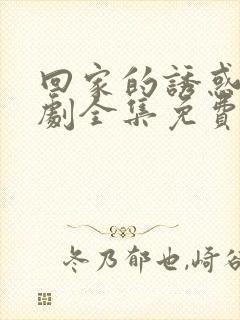 回家的誘惑
劇全集免費
冬乃郁也,崎谷